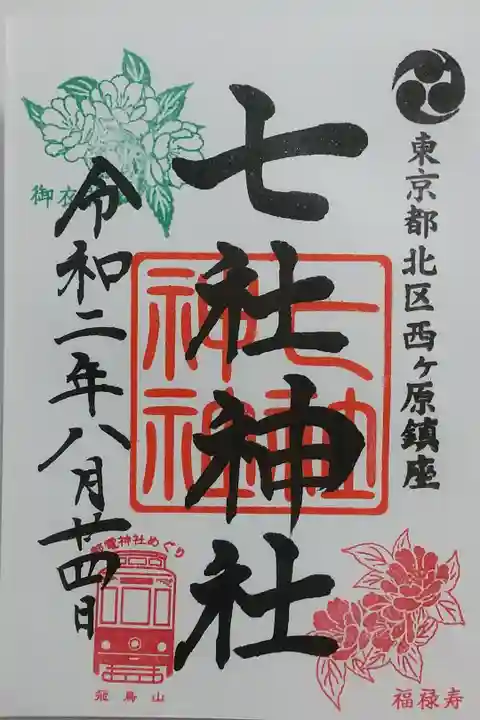 東京都北区西ヶ原鎮座
七社神社
七社神社
令和二年八月廿四日
御衣
都電神社めぐり
飛鳥山
福禄寿